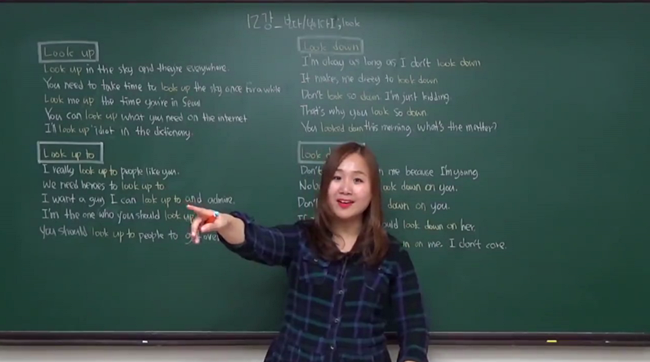 12강_보다/바라다 look
Look up
Look up in the sky and they're everywhere.
You need to take time to look up the sky once for a while
Look me up the time you're in Seoul
You can look up what you need on the internet
I'll look up "dot in the dictionary.
Look up to
I really look up to people like you.
We need heroes to look up to
I want a guy I can look up to and admire.
I'm the one who you should look up
You should look up to people to
Look down
I'm okay as long as I don't look down
It makes me dizzy to look down
Don't look so down. I'm just kidding.
That's why you look so down
You looked down this morning, what's the matter?
look
Don't me because I'm young.
look down on you.
Don't down on you.
should look down on her.
on me. I don't care.